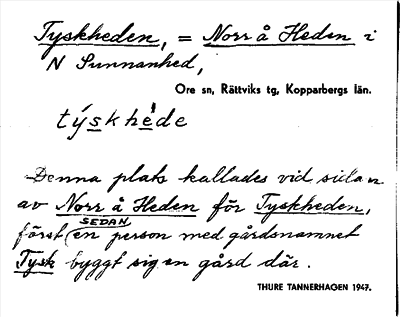 Tyskheden, = Norr å Heden i
N Sunnanhed,
Ore sn, Rättviks tg, Kopparbergs län.
týskhède
Denna plats kallades vid sidan
av Norr å Heden för Tyskheden,
SEDAN
först (en person med gårdsnamnet
Tysk byggt sig en gård där.
THURE TANNERHAGEN 1947.